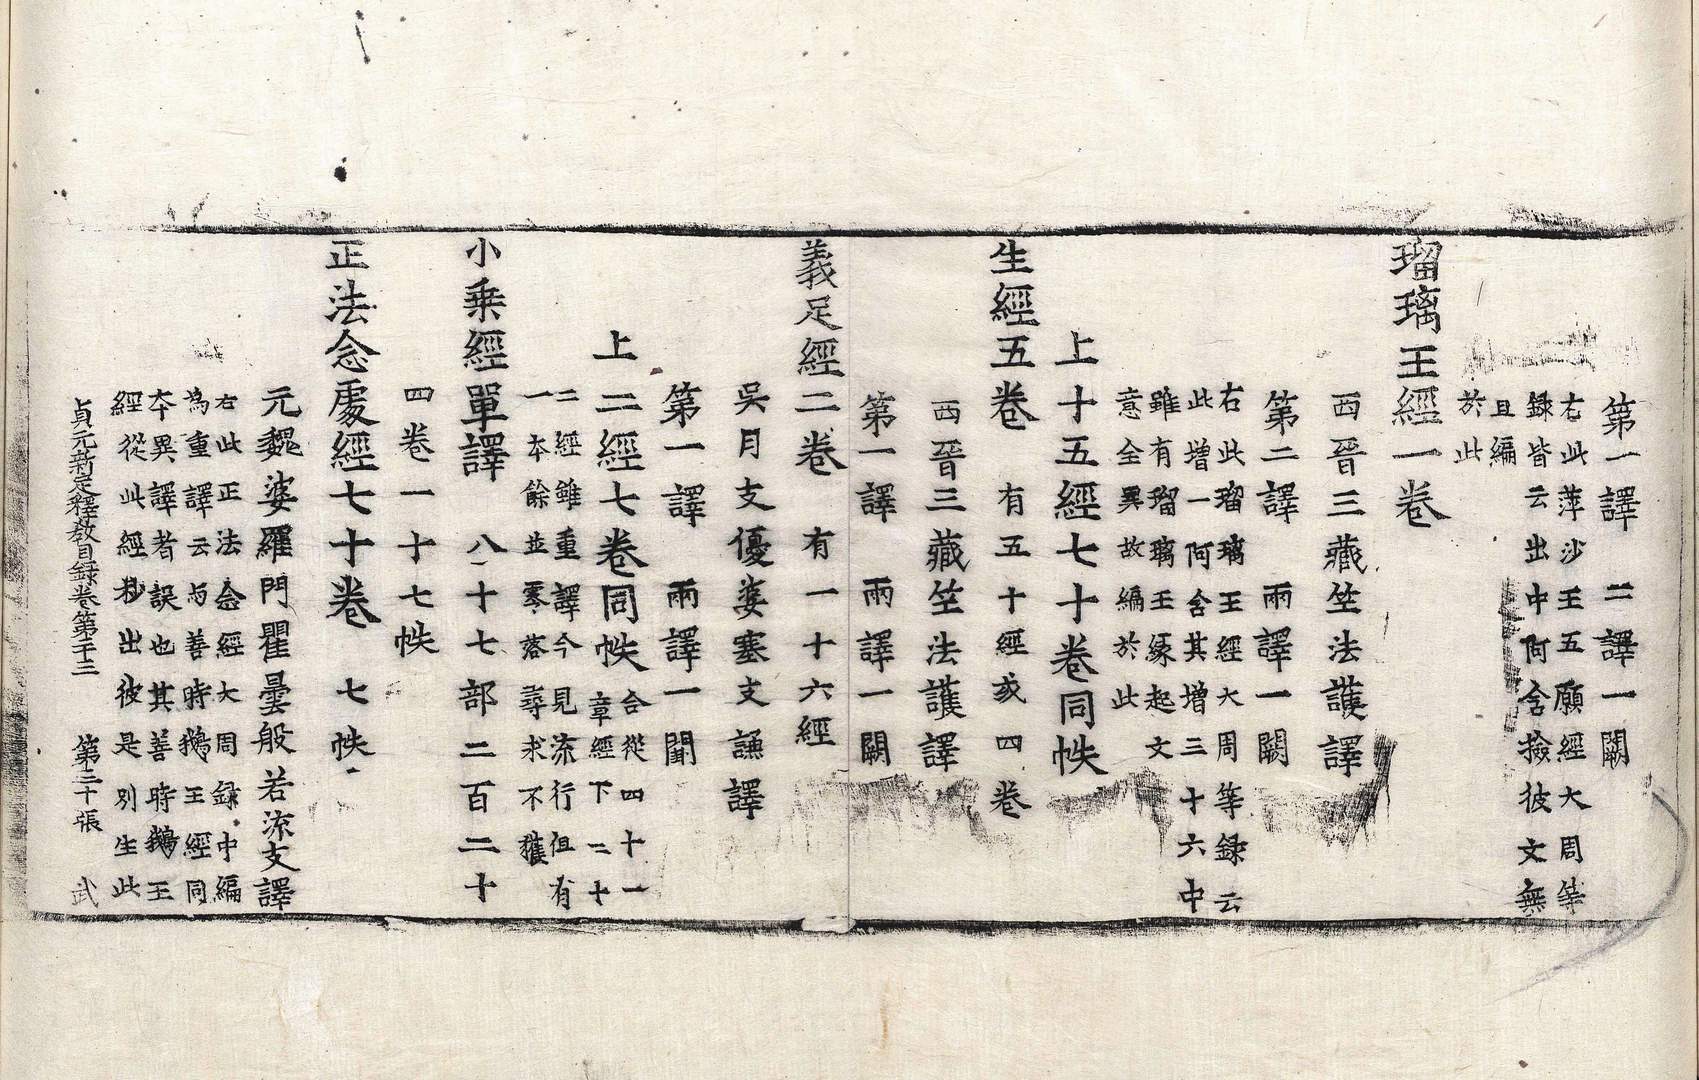 第一譯 二譯一闕
右此萍沙王五願經大周等
録皆云出中阿含撿彼文無
且編
於此
瑠璃王經一卷
西晉三藏竺法護譯
第二譯 兩譯一闕
右此瑠璃王經大周等録云
此增一阿含其增三十六中
雖有瑠璃王緣起文
意全異故編於此
上十五經七十卷同帙
生經五卷 有五十經或四卷
西晉三藏竺法護譯
第一譯 兩譯一闕
義足經二卷 有一十六經
吳月支優婆塞支謙譯
第一譯 兩譯一闕
上二經七卷同帙
合從四十一
章經下二十
二經雖重譯今見流行但有
一本餘並零落尋求不獲
小乗經單譯 八十七部二百二十
四卷一十七帙
正法念處經七十卷 七帙
元魏婆羅門瞿曇般若流支譯
右此正法念經大周録中編
為重譯云与善時鵝王經同
夲異譯者誤也其善時鵝王
經從此經抄出彼是別生此
貞元新定釋教目録卷第二十三 第二十張 武